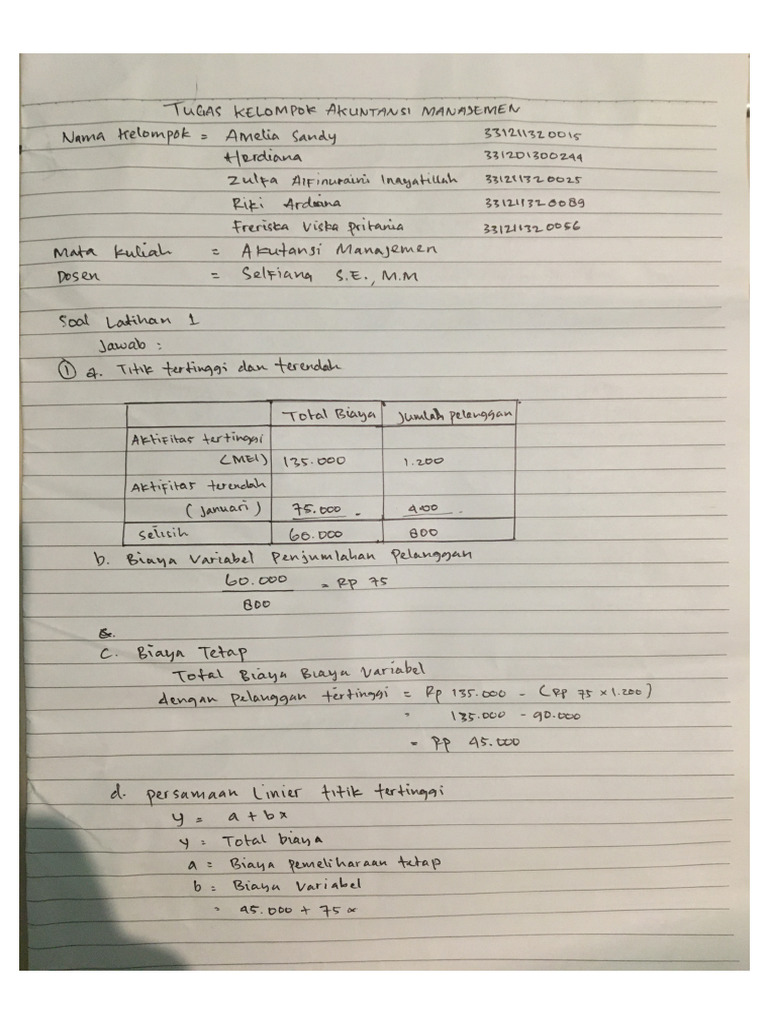 TUGAS KELOMPOK AKUNTANSI MANAJEMEN
Nama Kelompok = Amelia Sandy 331211320015
Herdiana 331201300244
Zulfa Alfinuraini Inayatillah 331211320025
Riki Ardiana 331211320089
Freriska Viska Pritania 331211320056
Mata kuliah = Akutansi Manajemen
Dosen = Selfiana S.E., M.M
Soal Latihan 1
Jawab :
① a. Titik tertinggi dan terendah
Total Biaya Jumlah pelanggan
Aktifitas tertinggi
(MEI) 135.000 1.200
Aktifitas terendah
(Januari) 75.000 - 400 -
Selisih 60.000 800
b. Biaya Variabel Penjumlahan Pelanggan
60.000
= Rp 75
800
c. Biaya Tetap
Total Biaya Biaya Variabel
dengan Pelanggan tertinggi = Rp 135.000 - (Rp 75 x 1.200)
= 135.000 - 90.000
= Rp 45.000
d. persamaan Linier titik tertinggi
y = a + bx
y = Total biaya
a = Biaya pemeliharaan tetap
b = Biaya Variabel
= 45.000 + 75 x